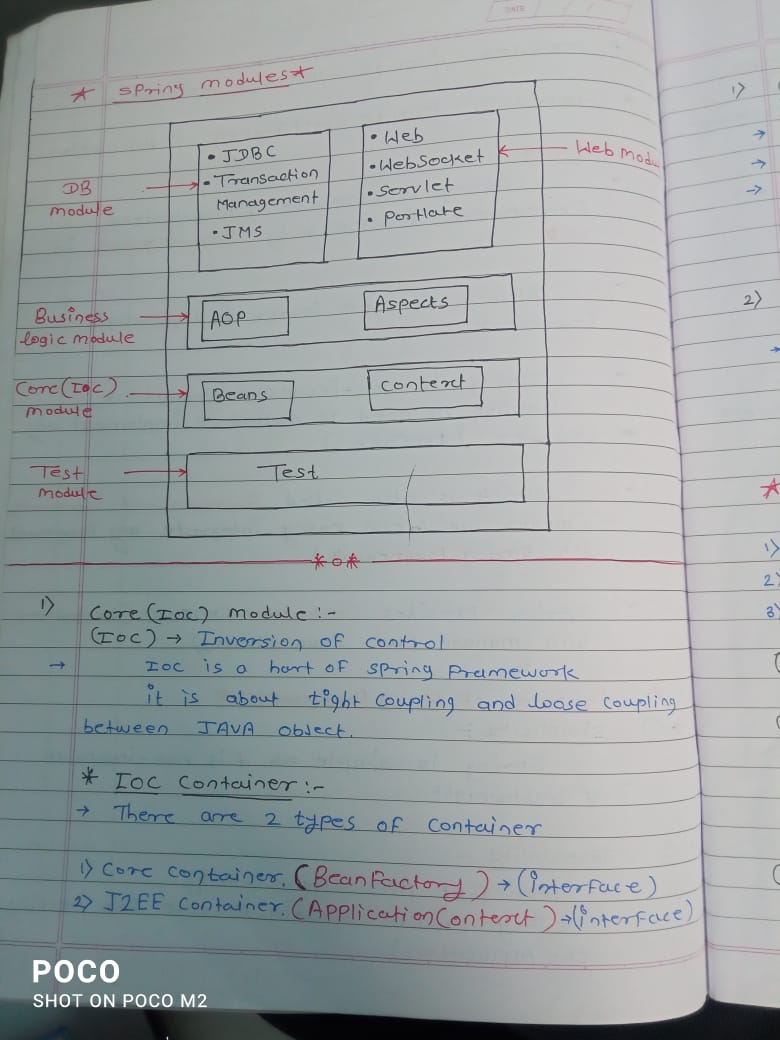 DATE
* Spring modules *
• JDBC
• Transaction
Management
• JMS
• Web
• WebSocket
• Servlet
• Portlate
DB
module
Web modu
Business
logic module
AOP
Aspects
Core(IOC)
module
Beans
Context
Test
module
Test
1) Core (IOC) module :-
(IOC) → Inversion of control
→ IOC is a hart of spring framework
it is about tight coupling and loose coupling
between JAVA object.
* IOC Container :-
→ There are 2 types of container
1) Core container. (BeanFactory) → (interface)
2) J2EE container. (ApplicationContext) → (interface)
1)
→
→
→
2)
→
*
1)
2)
3)
POCO
SHOT ON POCO M2